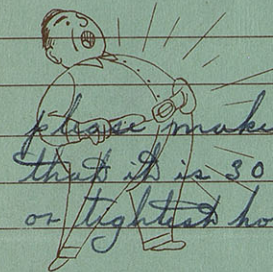 please make
that it is 30
or tightest ho